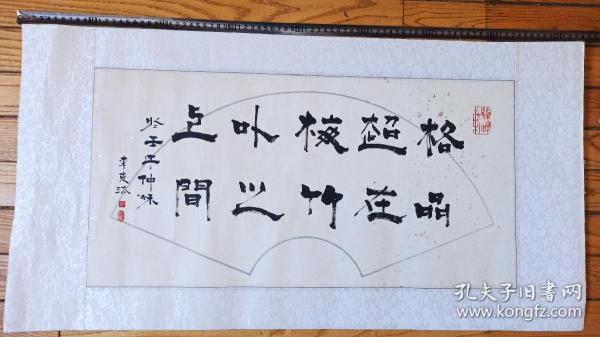 格超梅以上
品在竹之間
壬午仲秋
孔夫子旧书网
www.kongfz.com